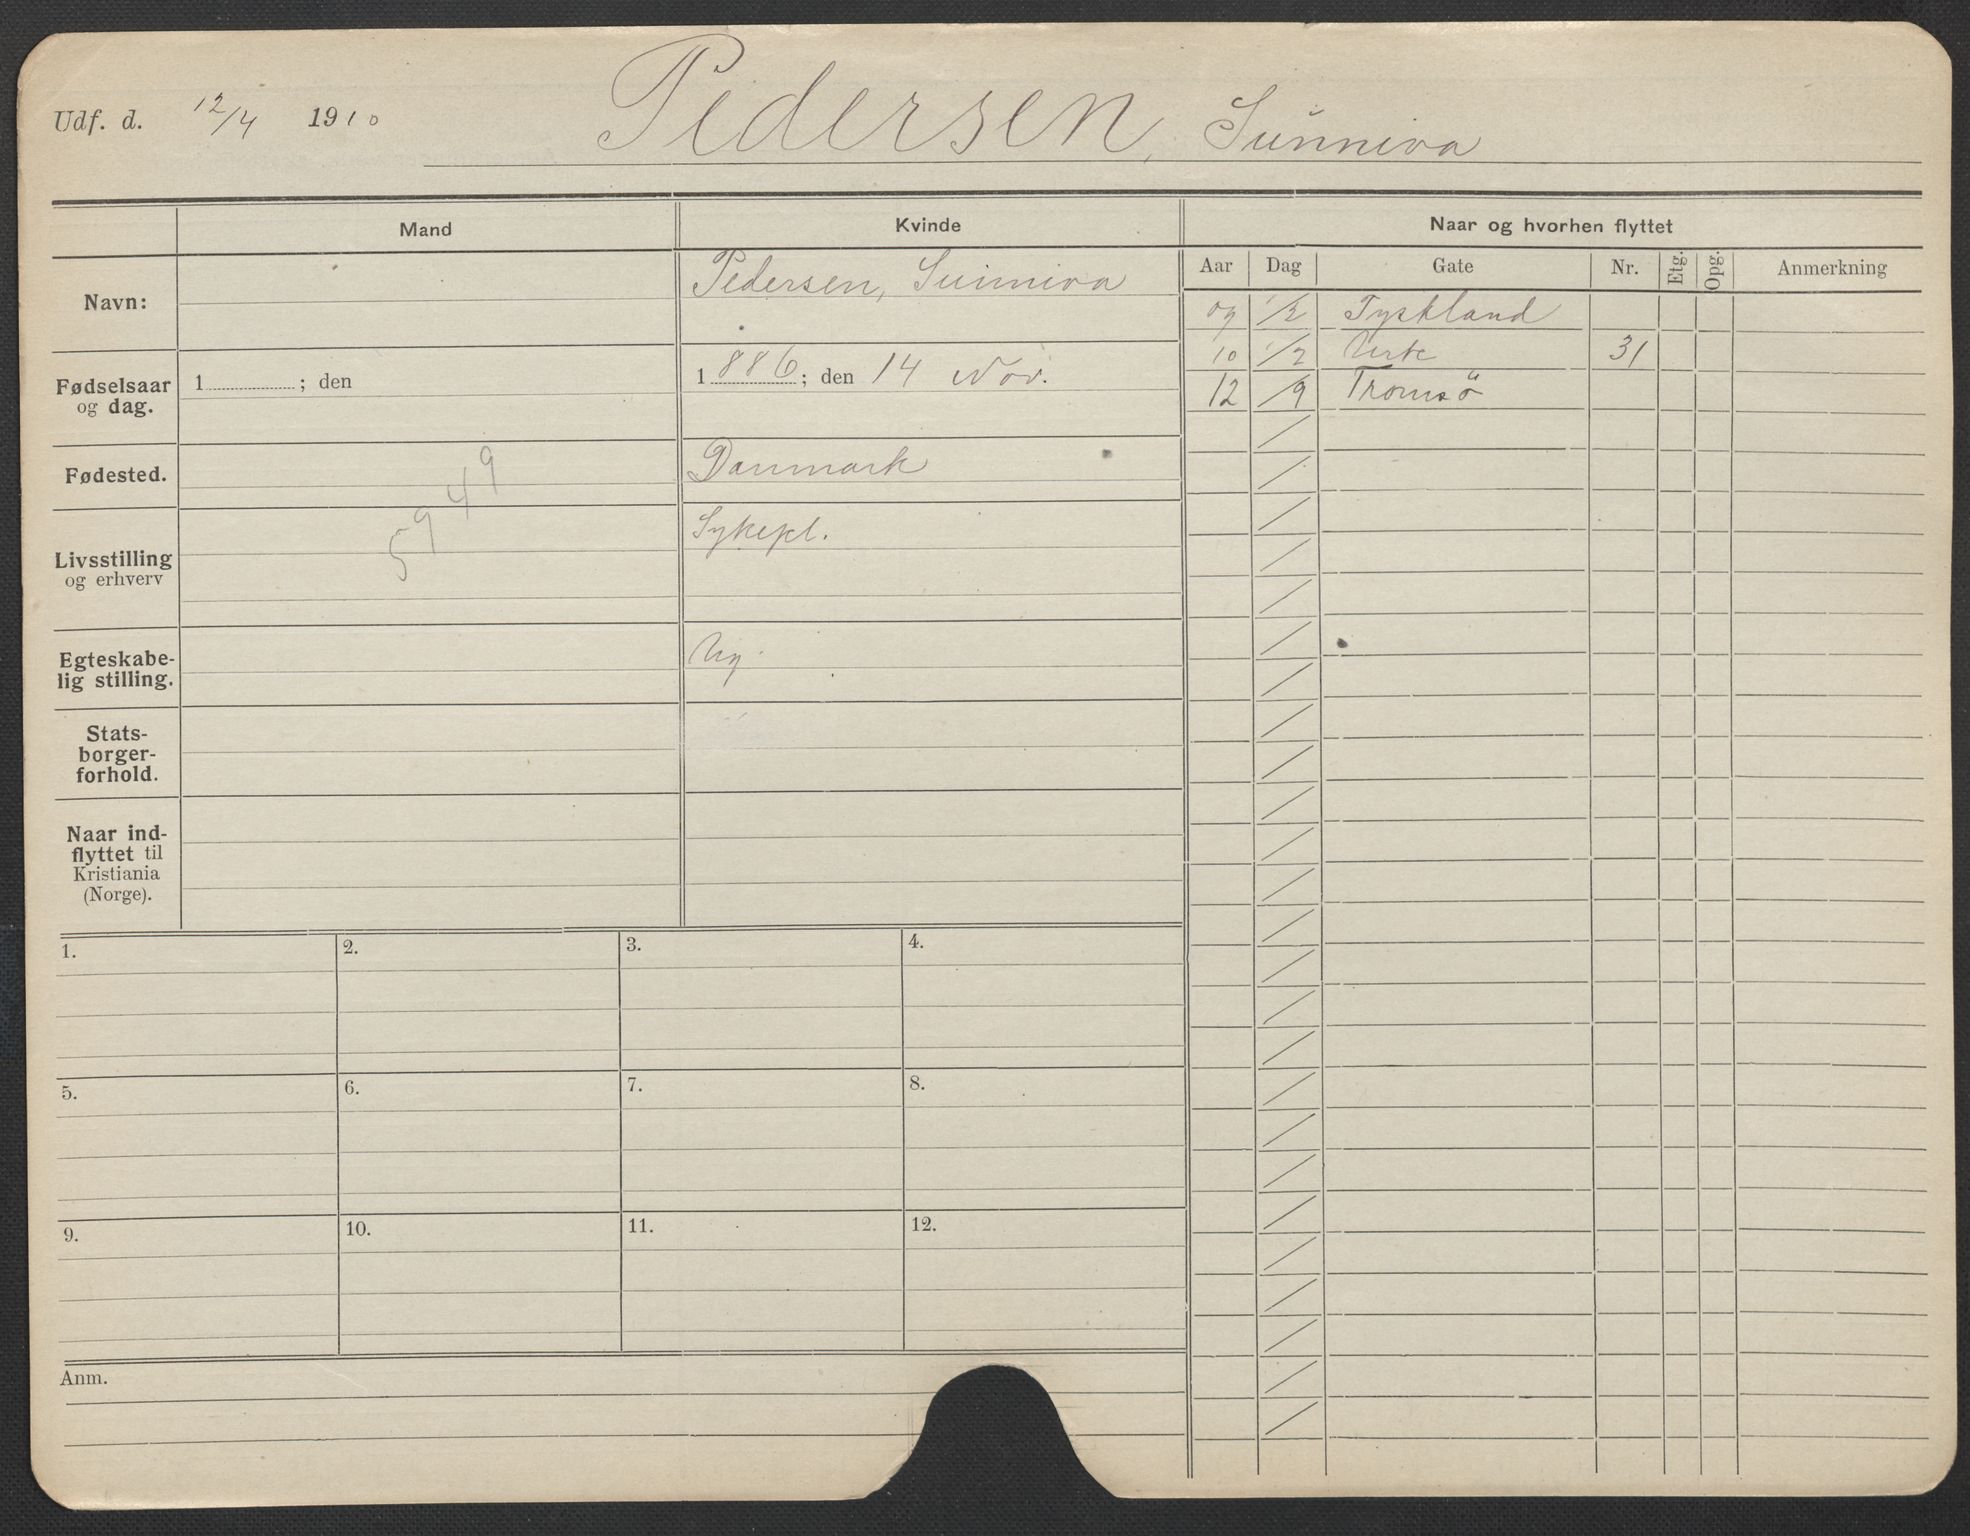 Udf. d. 12/4 1910 Pedersen, Sunniva
Mand Kvinde Naar og hvorhen flyttet
Aar Dag Gate Nr. Etg. Opg. Anmerkning
Navn: Pedersen, Sunniva
Fødselsaar og dag. 1 ; den 1886; den 14 Nov.
Fødested. Danmark
Livsstilling og erhverv Sykepl.
5949
Egteskabe-
lig stilling. Ug.
Stats-
borger-
forhold.
Naar ind-
flyttet til
Kristiania
(Norge).
09 1/2 Tyskland
10 1/2 31
12 /9 Tromsö
1. 2. 3. 4.
5. 6. 7. 8.
9. 10. 11. 12.
Anm.